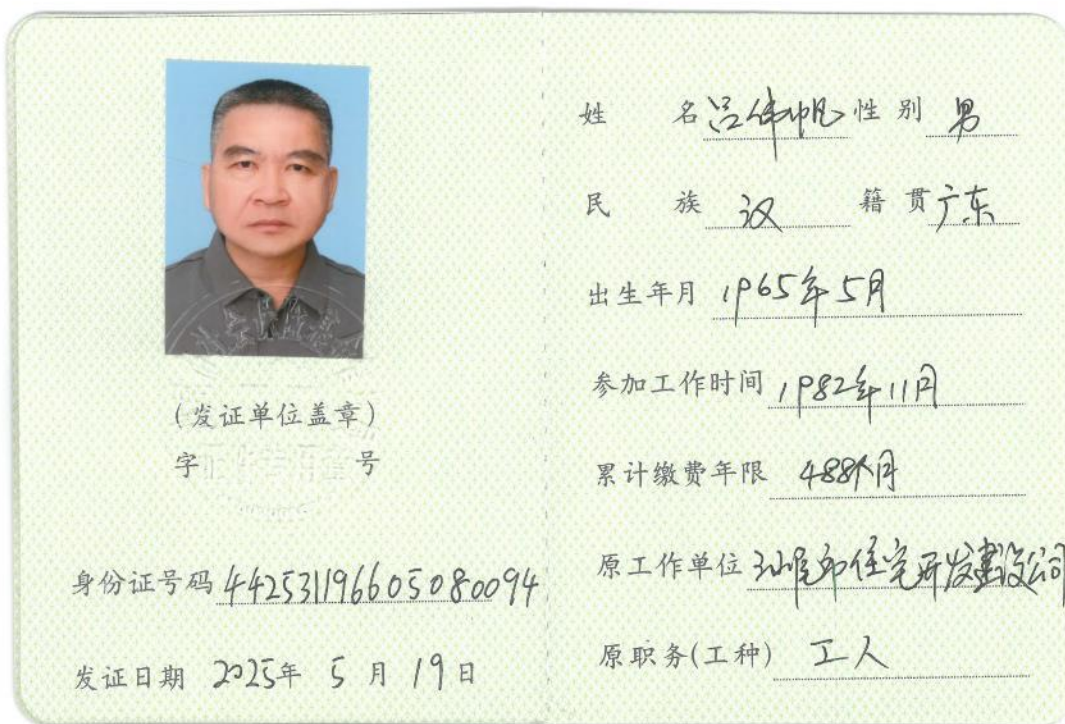 (发证单位盖章)
字 号
身份证号码 442531196605080094
发证日期 2025年 5 月 19 日
姓 名 吕伟帆 性 别 男
民 族 汉 籍 贯 广东
出生年月 1965年5月
参加工作时间 1982年11月
累计缴费年限 488个月
原工作单位 汕尾市住宅开发建设公司
原职务(工种) 工人